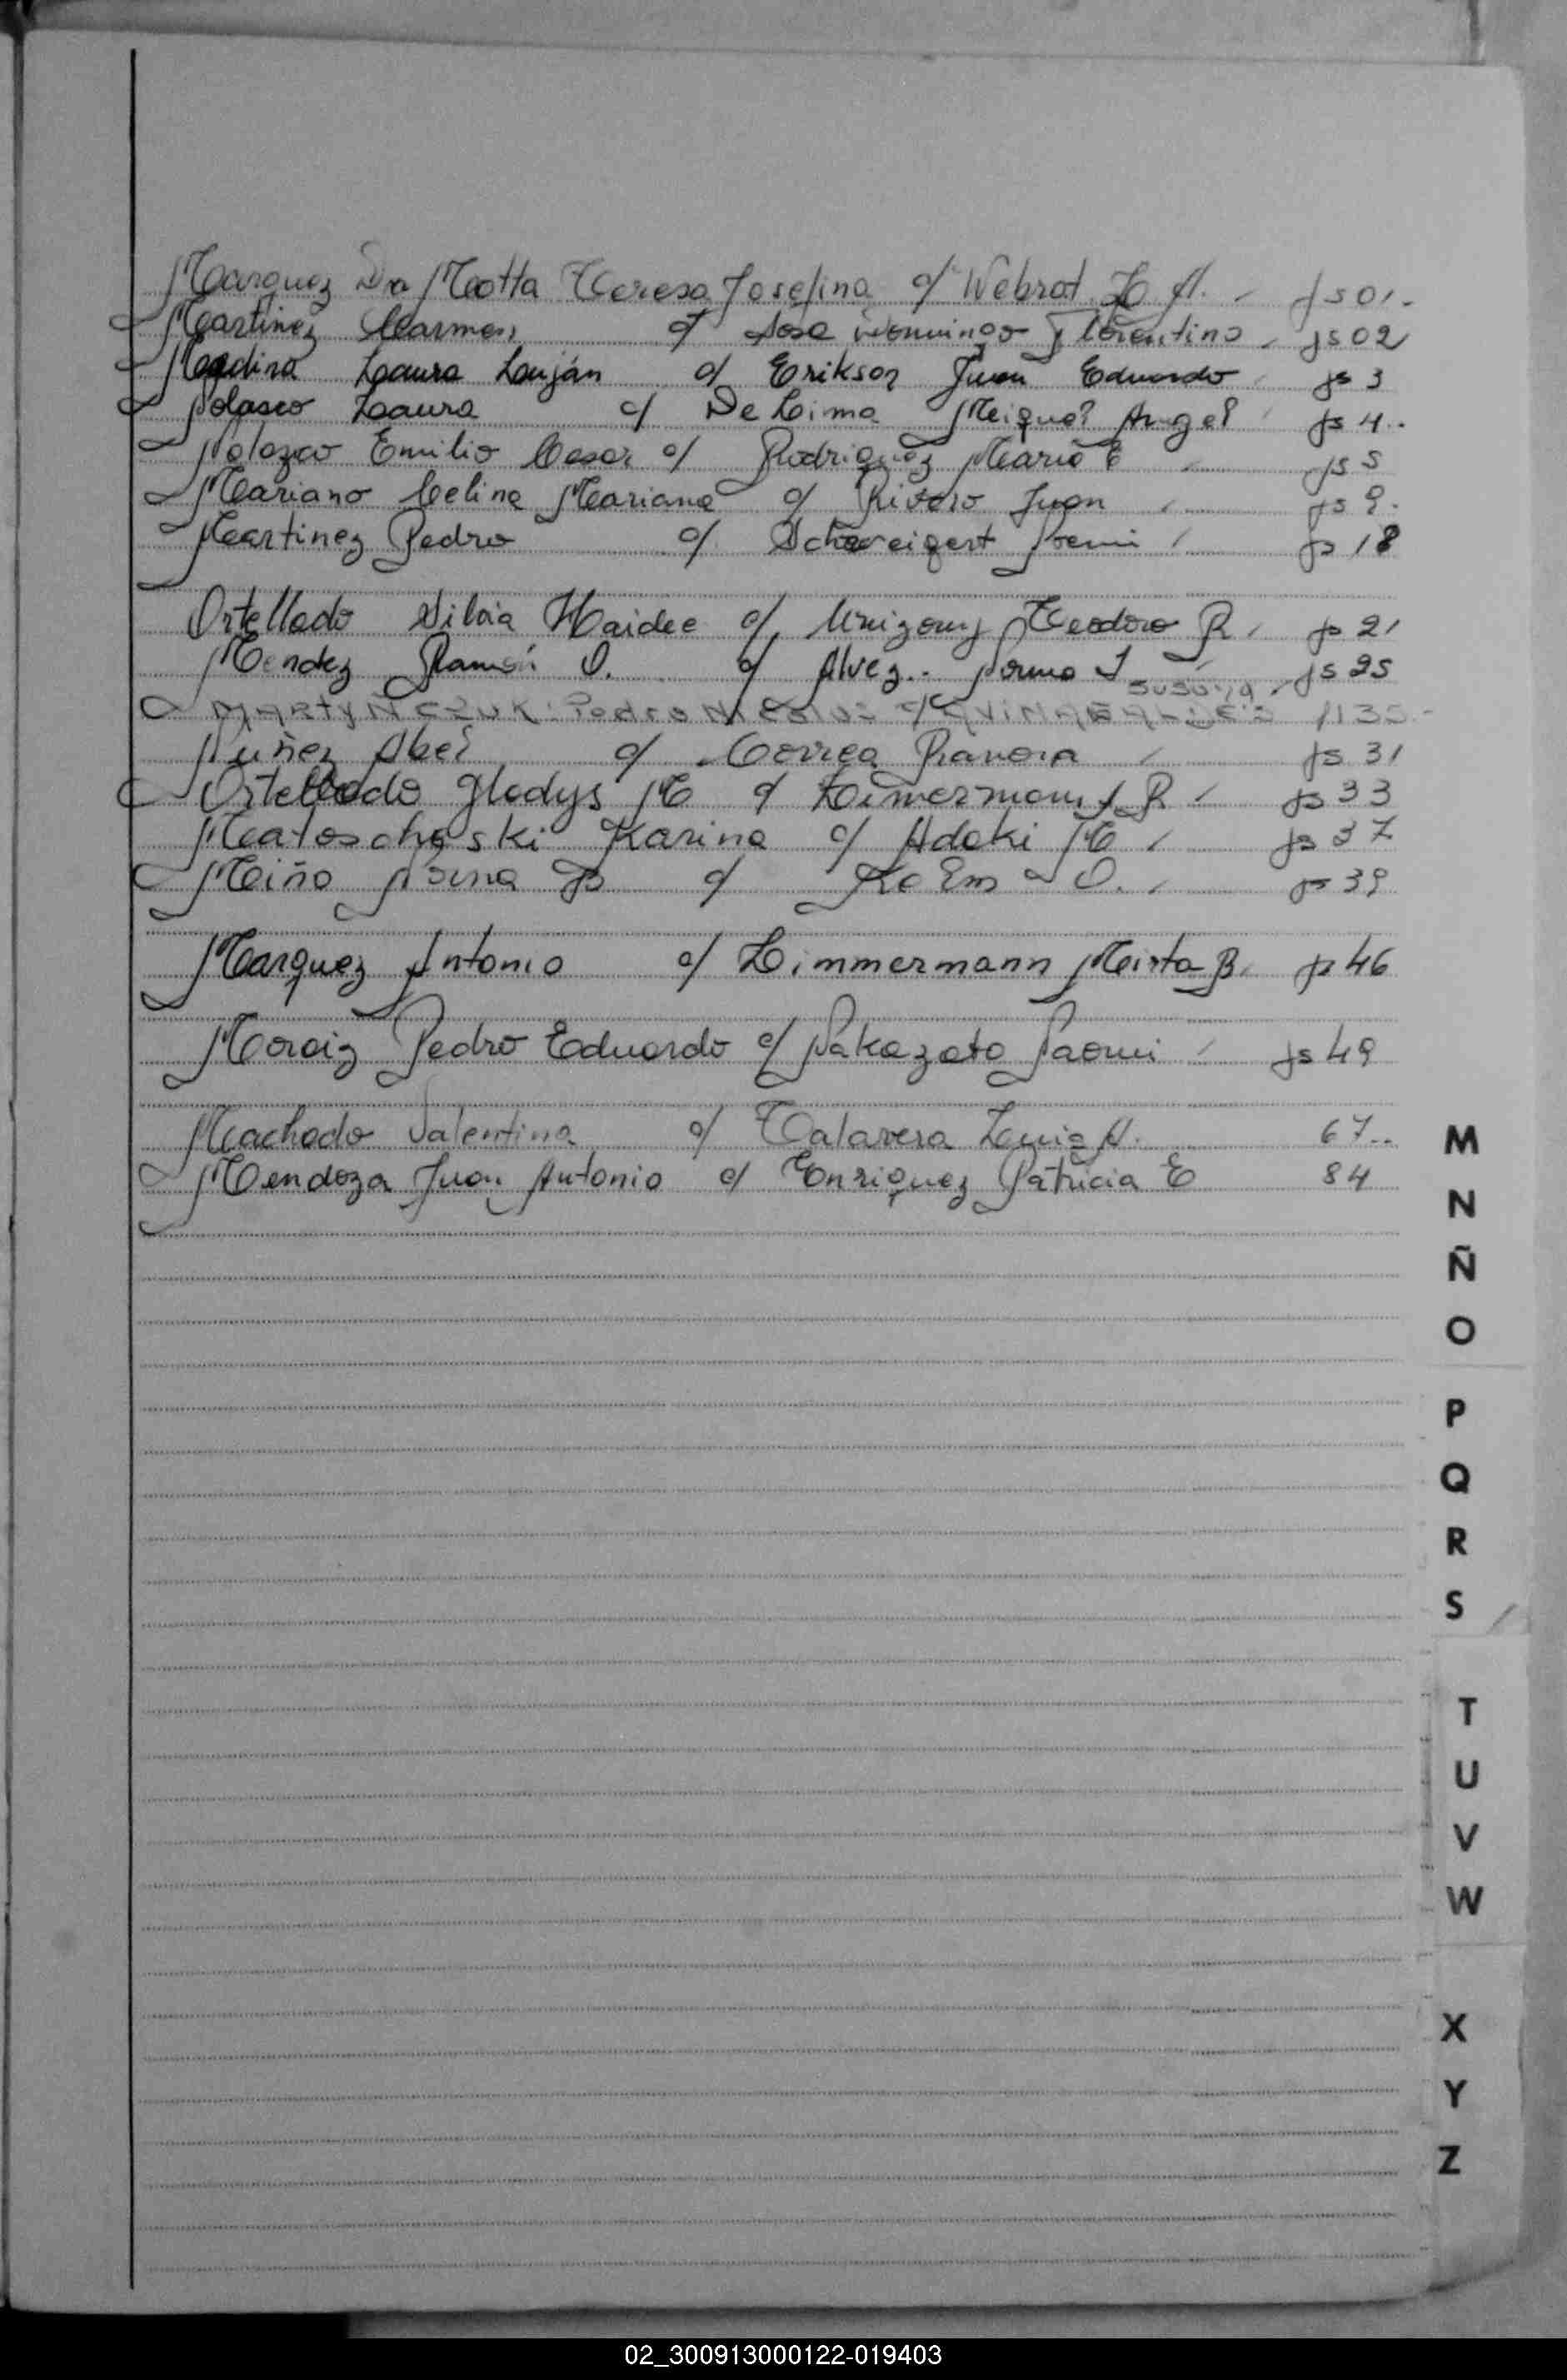 Marquez Da Motta Teresa Josefina c/ Webrat H. A. fs 01.
Martinez Carmen c/ Sosa Domingo Florentino fs 02
Medina Laura Luján c/ Erikson Juan Eduardo fs 3
Nolasco Laura c/ De Lima Miguel Angel fs 4
Emilio Cesar c/ Rodriguez Mario E fs 5
Mariano Celina Mariana c/ Rivero Juan fs 9
Martinez Pedro c/ Noemi fs 18
Ortellado Silvia Haidee c/ Teodoro R. fs 21
Mendez Ramón O. c/ Alvez Norma I fs 25
Susana
MARTYNCZUK Pedro Nicolas c/
Nuñez Abel c/ Correa Ramona fs 31
Ortellado Gladys M c/ Zimermann R fs 33
Karina c/ Adaki M fs 37
Miño c/ fs 39
Marquez Antonio c/ Zimmermann Mirta B. fs 46
Moraiz Pedro Eduardo c/ Nakazato Naomi fs 49
Machado Valentina c/ Talavera Luis A. 67
Mendoza Juan Antonio c/ Enriquez Patricia E 84
M
N
Ñ
O
P
Q
R
S
T
U
V
W
X
Y
Z
02_300913000122-019403